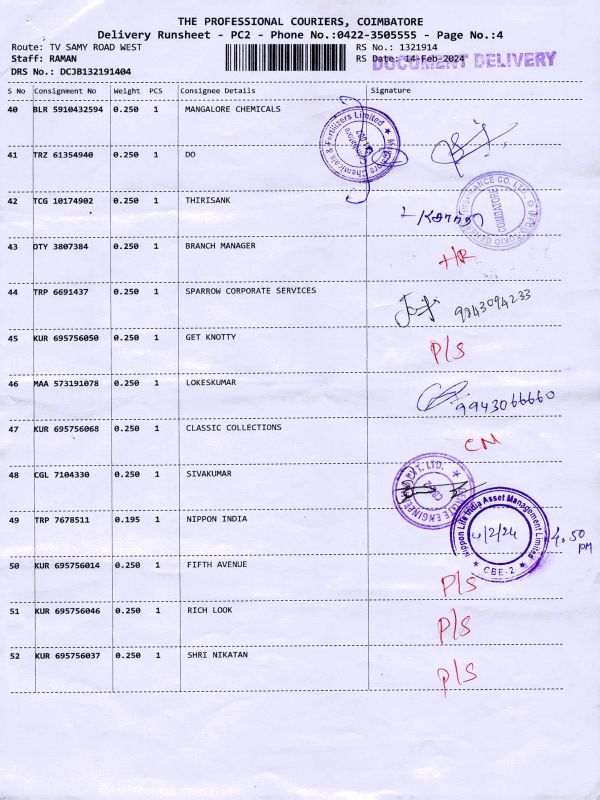 THE PROFESSIONAL COURIERS, COIMBATORE
Delivery Runsheet - PC2 - Phone No.:0422-3505555 - Page No.:4
Route: TV SAMY ROAD WEST RS No.: 1321914
Staff: RAMAN RS Date: 14-Feb-2024 DOCUMENT DELIVERY
DRS No.: DCJB132191404
S No Consignment No Weight PCS Consignee Details Signature
40 BLR 5910432594 0.250 1 MANGALORE CHEMICALS
Mangalore Chemicals & Fertilizers Limited
41 TRZ 61354940 0.250 1 DO
42 TCG 10174902 0.250 1 THIRISANK
COIMBATORE
43 OTY 3807384 0.250 1 BRANCH MANAGER
44 TRP 6691437 0.250 1 SPARROW CORPORATE SERVICES 9943094233
45 KUR 695756050 0.250 1 GET KNOTTY P/S
46 MAA 573191078 0.250 1 LOKESKUMAR 9943066660
47 KUR 695756068 0.250 1 CLASSIC COLLECTIONS CN
48 CGL 7104330 0.250 1 SIVAKUMAR
49 TRP 7678511 0.195 1 NIPPON INDIA
Nippon Life India Asset Management Limited
CBE-2
4.50 PM
50 KUR 695756014 0.250 1 FIFTH AVENUE P/S
51 KUR 695756046 0.250 1 RICH LOOK P/S
52 KUR 695756037 0.250 1 SHRI NIKATAN P/S